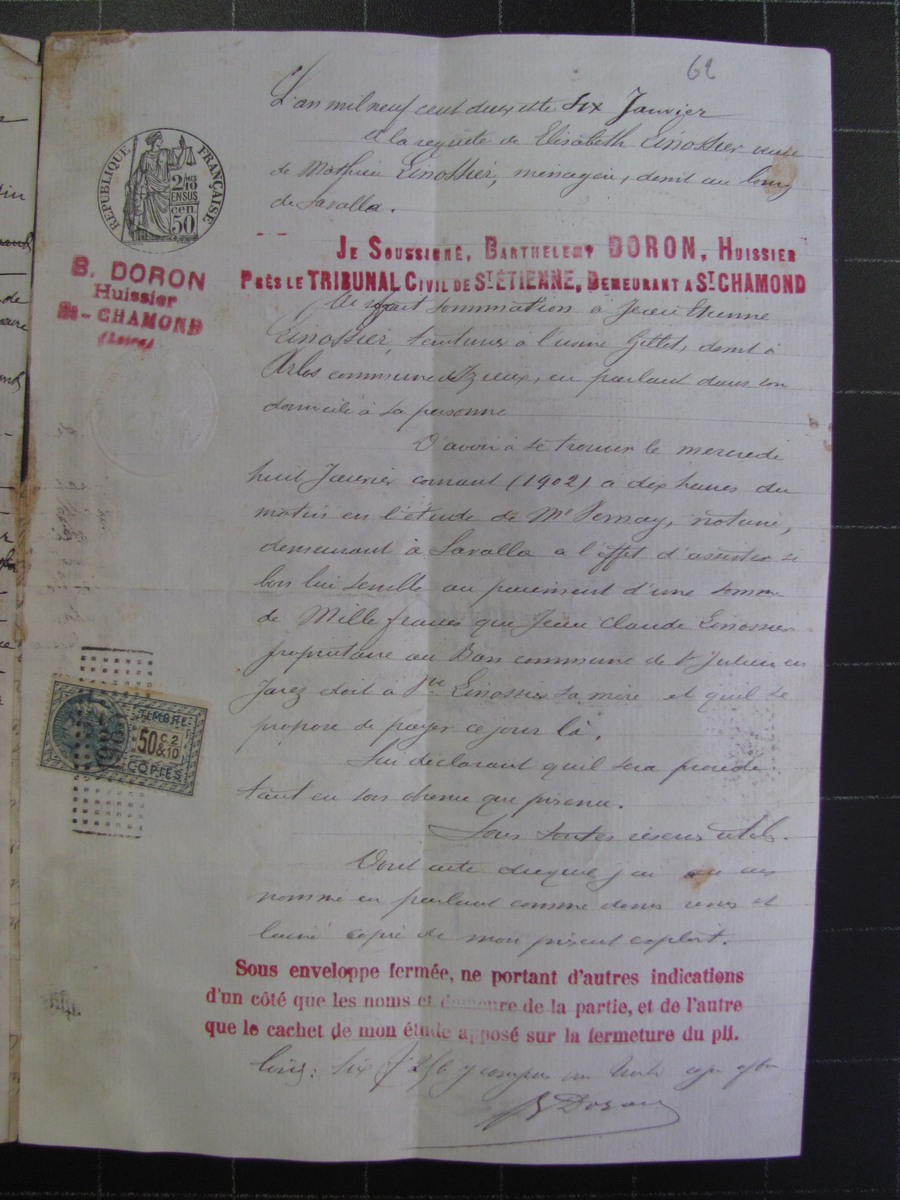 62
L'an mil neuf cent deux et le six Janvier
à la requête de Elisabeth Linossier veuve
de Mathieu Linossier, ménagère, demt au bourg
de Lavalla.
RÉPUBLIQUE FRANÇAISE
2/10
EN SUS
50 cen.
JE SOUSSIGNÉ, BARTHELEMY DORON, HUISSIER
PRÈS LE TRIBUNAL CIVIL DE ST ÉTIENNE, DEMEURANT A ST CHAMOND
B. DORON
Huissier
St-CHAMOND
(Loire)
Ai fait sommation à Jean Etienne
Linossier, teinturier à l'usine Gillet, demt à
Arlos commune d'Izieux, en parlant dans son
domicile à sa personne
D'avoir à se trouver le mercredi
huit Janvier courant (1902) à dix heures du
matin en l'étude de Me Pernay, notaire,
demeurant à Lavalla à l'effet d'assister si
bon lui semble au paiement d'une somme
de Mille francs que Jean Claude Linossier
propriétaire au Ban commune de St Julien en
Jarez doit à Vve Linossier sa mère et qu'il se
propose de payer ce jour là.
TIMBRE
50 c. 2 & 10
COPIES
Lui déclarant qu'il sera procédé
tant en son absence que présence.
Sous toutes réserves utiles.
Dont acte duquel j'ai au sus
nommé en parlant comme dessus remis et
laissé copie de mon présent exploit.
Sous enveloppe fermée, ne portant d'autres indications
d'un côté que les noms et demeure de la partie, et de l'autre
que le cachet de mon étude apposé sur la fermeture du pli.
Coût: six f y compris copie
B Doron